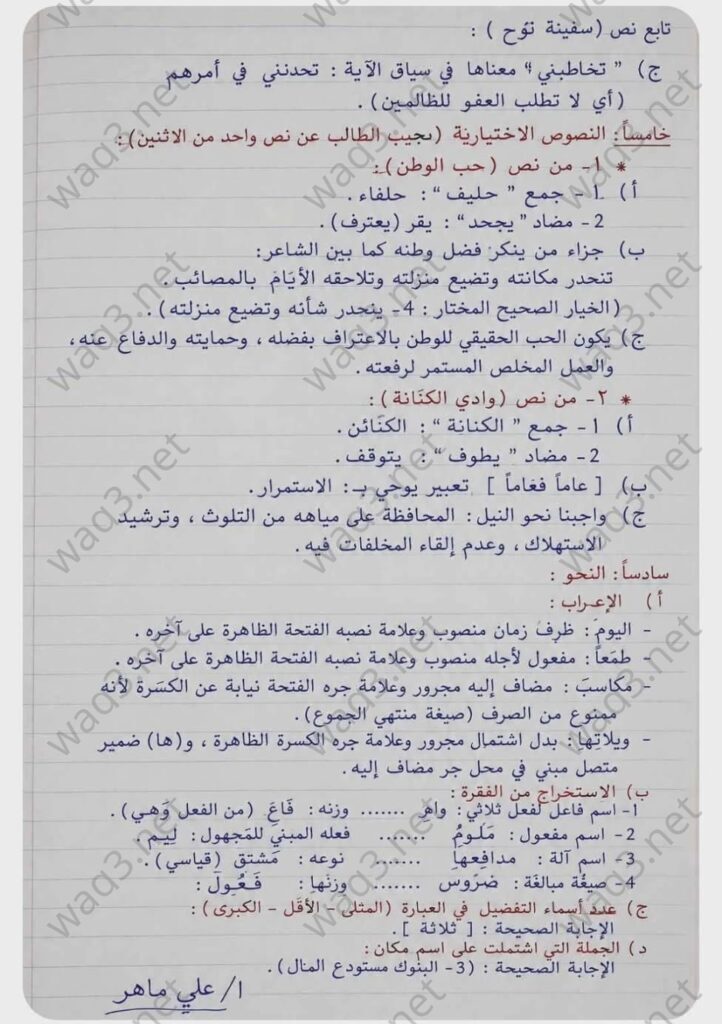 تابع نص (سفينة نوح) :
ج) " تخاطبني " معناها في سياق الآية : تحدثني في أمرهم
(أي لا تطلب العفو للظالمين) .
خامساً : النصوص الاختيارية (يجيب الطالب عن نص واحد من الاثنين) :
* ١- من نص (حب الوطن) :
أ) 1- جمع " حليف " : حلفاء .
2- مضاد " يجحد " : يقر (يعترف) .
ب) جزاء من ينكر فضل وطنه كما بين الشاعر:
تنحدر مكانته وتضيع منزلته وتلاحقه الأيام بالمصائب .
(الخيار الصحيح المختار : 4- ينحدر شأنه وتضيع منزلته) .
ج) يكون الحب الحقيقي للوطن بالاعتراف بفضله ، وحمايته والدفاع عنه ،
والعمل المخلص المستمر لرفعته .
* ٢- من نص (وادي الكنانة) :
أ) 1- جمع " الكنانة " : الكنائن .
2- مضاد " يطوف " : يتوقف .
ب) [ عاماً فعاماً ] تعبير يوحي بـ : الاستمرار .
ج) واجبنا نحو النيل : المحافظة على مياهه من التلوث ، وترشيد
الاستهلاك ، وعدم إلقاء المخلفات فيه .
سادساً : النحو :
أ) الإعراب :
- اليوم : ظرف زمان منصوب وعلامة نصبه الفتحة الظاهرة على آخره .
- طمعاً : مفعول لأجله منصوب وعلامة نصبه الفتحة الظاهرة على آخره .
- مكاسبَ : مضاف إليه مجرور وعلامة جره الفتحة نيابة عن الكسرة لأنه
ممنوع من الصرف (صيغة منتهى الجموع) .
- ويلاتِها : بدل اشتمال مجرور وعلامة جره الكسرة الظاهرة ، و(ها) ضمير
متصل مبني في محل جر مضاف إليه .
ب) الاستخراج من الفقرة :
1- اسم فاعل لفعل ثلاثي : واهٍ ....... وزنه : فَاعَ (من الفعل وَهي) .
2- اسم مفعول : مَلومُ ....... فعله المبني للمَجهول : لِيم .
3- اسم آلة : مدافعها ....... نوعه : مُشتق (قياسي) .
4- صيغة مبالغة : ضَرُوس ....... وزنها : فَعُول :
ج) عدد أسماء التفضيل في العبارة (المثلى - الأقل - الكبرى) :
الإجابة الصحيحة : [ ثلاثة ] .
د) الجملة التي اشتملت على اسم مكان :
الإجابة الصحيحة : (3- البنوك مستودع المال) .
ا/ علي ماهر
waq3.net